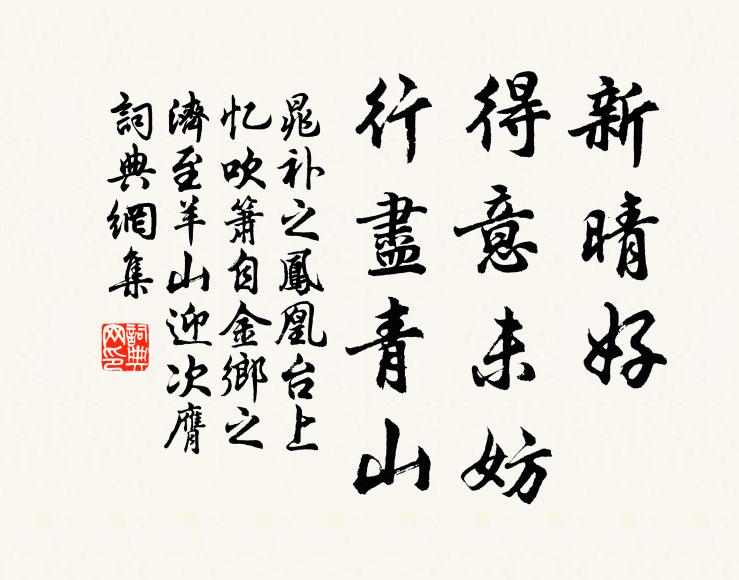 新晴好
得意未妨
行盡青山
晁补之鳳凰台上
忆吹簫自金鄉之
濟至羊山迎次膺
詞典網集
詞典
网印